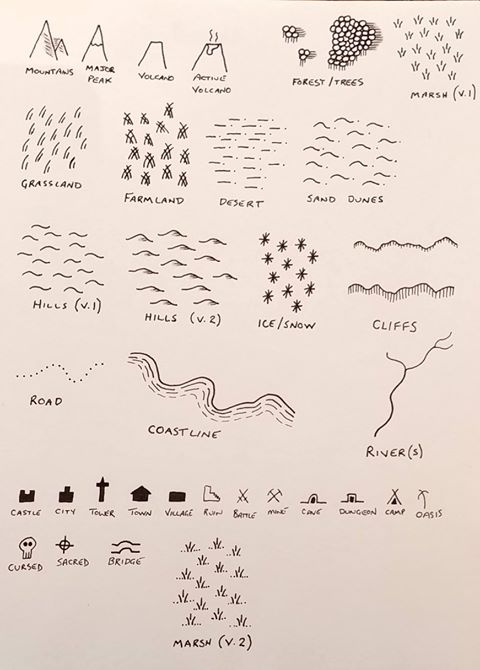 MOUNTAINS
MAJOR
PEAK
VOLCANO
ACTIVE
VOLCANO
FOREST/TREES
MARSH (V.1)
GRASSLAND
FARMLAND
DESERT
SAND DUNES
HILLS (V.1)
HILLS (V.2)
ICE/SNOW
CLIFFS
ROAD
COASTLINE
RIVER(S)
CASTLE CITY TOWER TOWN VILLAGE RUIN BATTLE MINE CAVE DUNGEON CAMP OASIS
CURSED SACRED BRIDGE
MARSH (V.2)